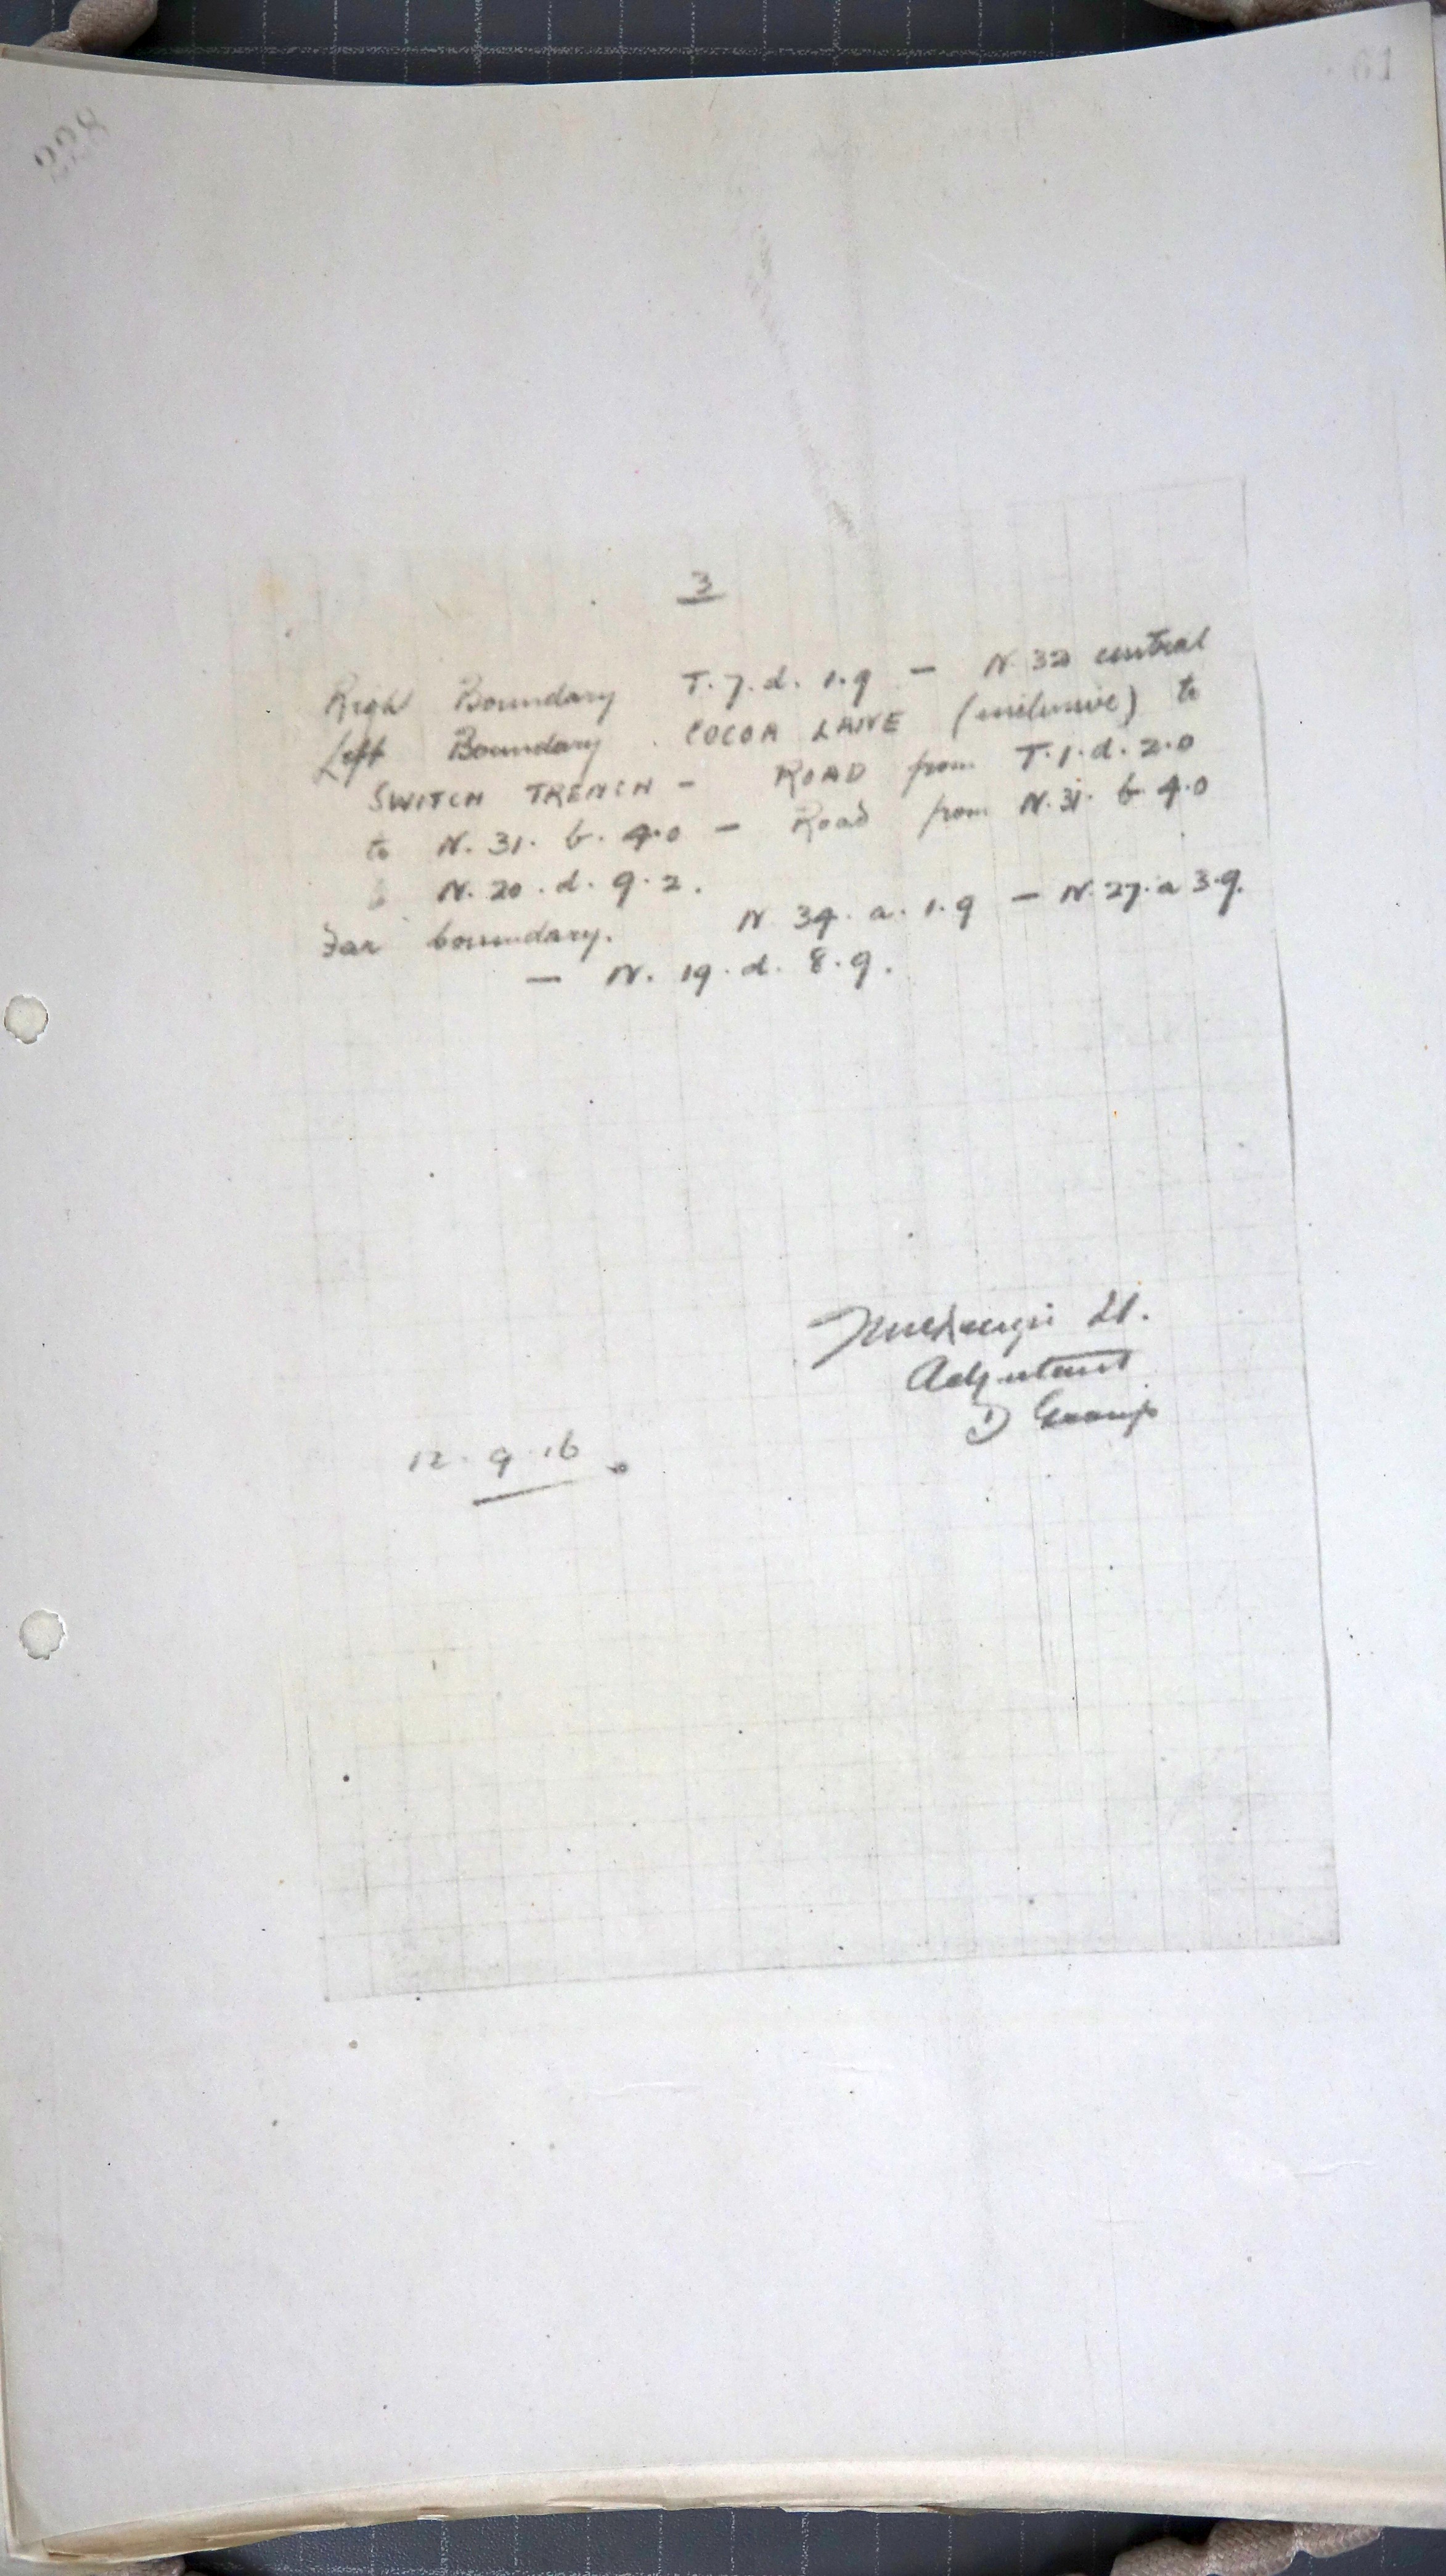 61
228
3
Right Boundary T.7.d.1.9 — N 32 central
Left Boundary . COCOA LANE (inclusive) to
SWITCH TRENCH - ROAD from T.1.d.2.0
to N.31.b.4.0 — Road from N.31.b.4.0
to N.20.d.9.2.
Far boundary. N 34.a.1.9 — N.27.a 3.9.
— N.19.d.8.9.
Lt.
Adjutant
D Group
12.9.16.